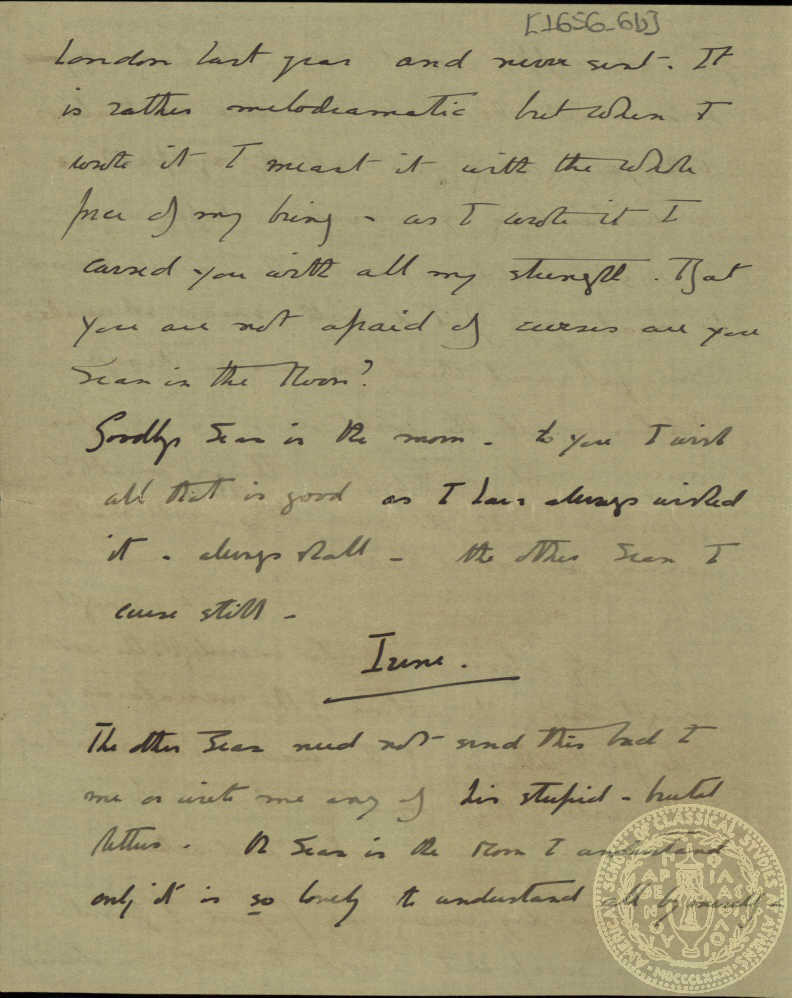 [1656-6b]
London last year and never sent. It
is rather melodramatic but when I
wrote it I meant it with the whole
force of my being - as I wrote it I
cursed you with all my strength. But
you are not afraid of curses are you
Sean in the Moon?
Goodbye Sean in the moon - to you I wish
all that is good as I have always wished
it - always shall - the other Sean I
curse still -
Irene.
The other Sean need not send this back to
me or write me any of his stupid - brutal
letters - Sean in the Moon I understand
only it is so lonely to understand all by myself -
AMERICAN SCHOOL OF CLASSICAL STUDIES AT ATHENS
MDCCCLXXXI